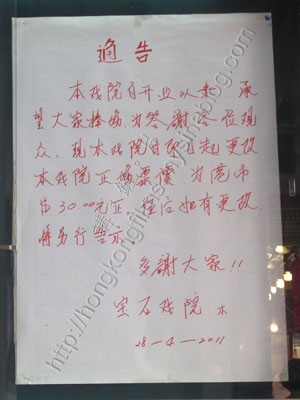 通告
本戏院自开业以来 承
望大家捧场为答谢各位观
众,现本戏院自即日起更改
本戏院正场票價 为港币
$30.00元正,往后如有更改.
将另行告示
多謝大家!!
宝石戏院
28-4-2011
http://hongkongfilms.mysinablog.com